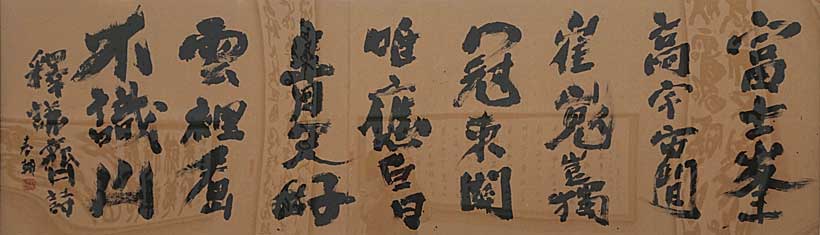 富士峯
高宇宙間
崔嵬豈獨
冠東関
唯應白日
青天好
雲裡看
不識山
釋謙齋詩